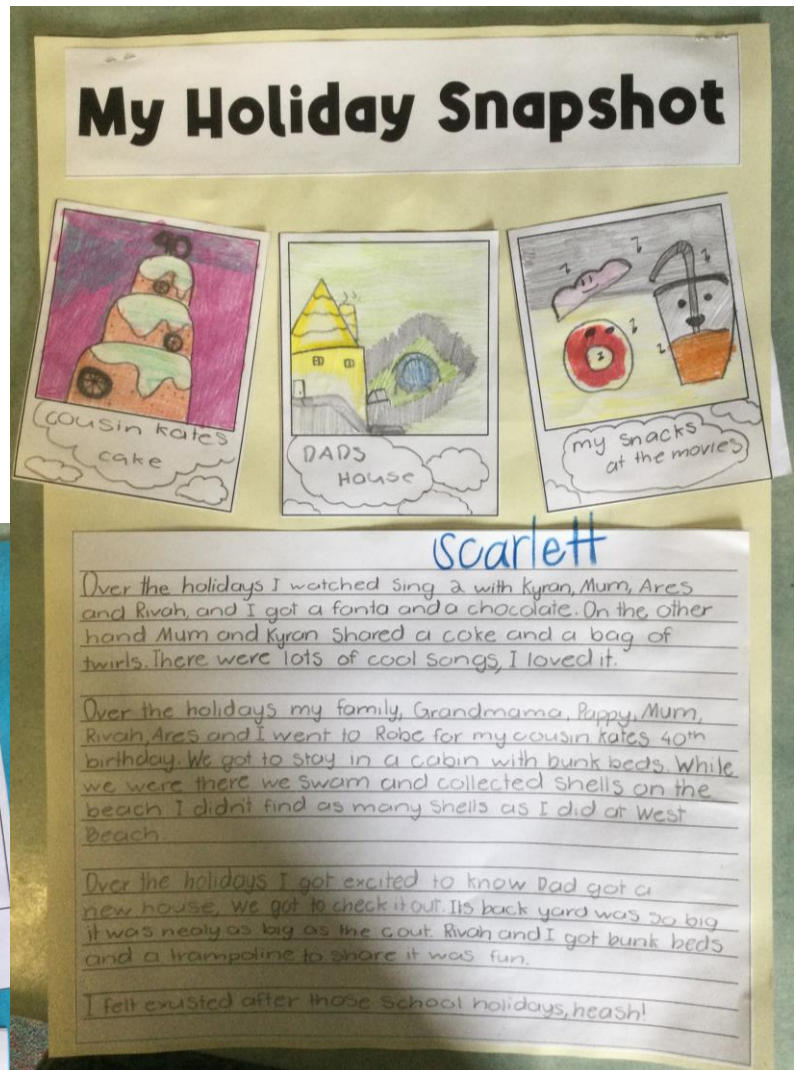 My Holiday Snapshot
40
cousin kates
cake
DADS
House
my snacks
at the movies
Scarlett
Over the holidays I watched Sing 2 with Kyran, Mum, Ares
and Rivah, and I got a fanta and a chocolate. On the other
hand Mum and Kyran Shared a coke and a bag of
twirls. There were lots of cool songs, I loved it.
Over the holidays my family, Grandmama, Pappy, Mum,
Rivah, Ares and I went to Robe for my cousin kates 40th
birthday. We got to stay in a cabin with bunk beds. While
we were there we swam and collected shells on the
beach I didn't find as many shells as I did at West
Beach.
Over the holidays I got excited to know Dad got a
new house, we got to check it out. Its back yard was so big
it was nealy as big as the cout. Rivah and I got bunk beds
and a trampoline to share it was fun.
I felt exusted after those school holidays, heash!